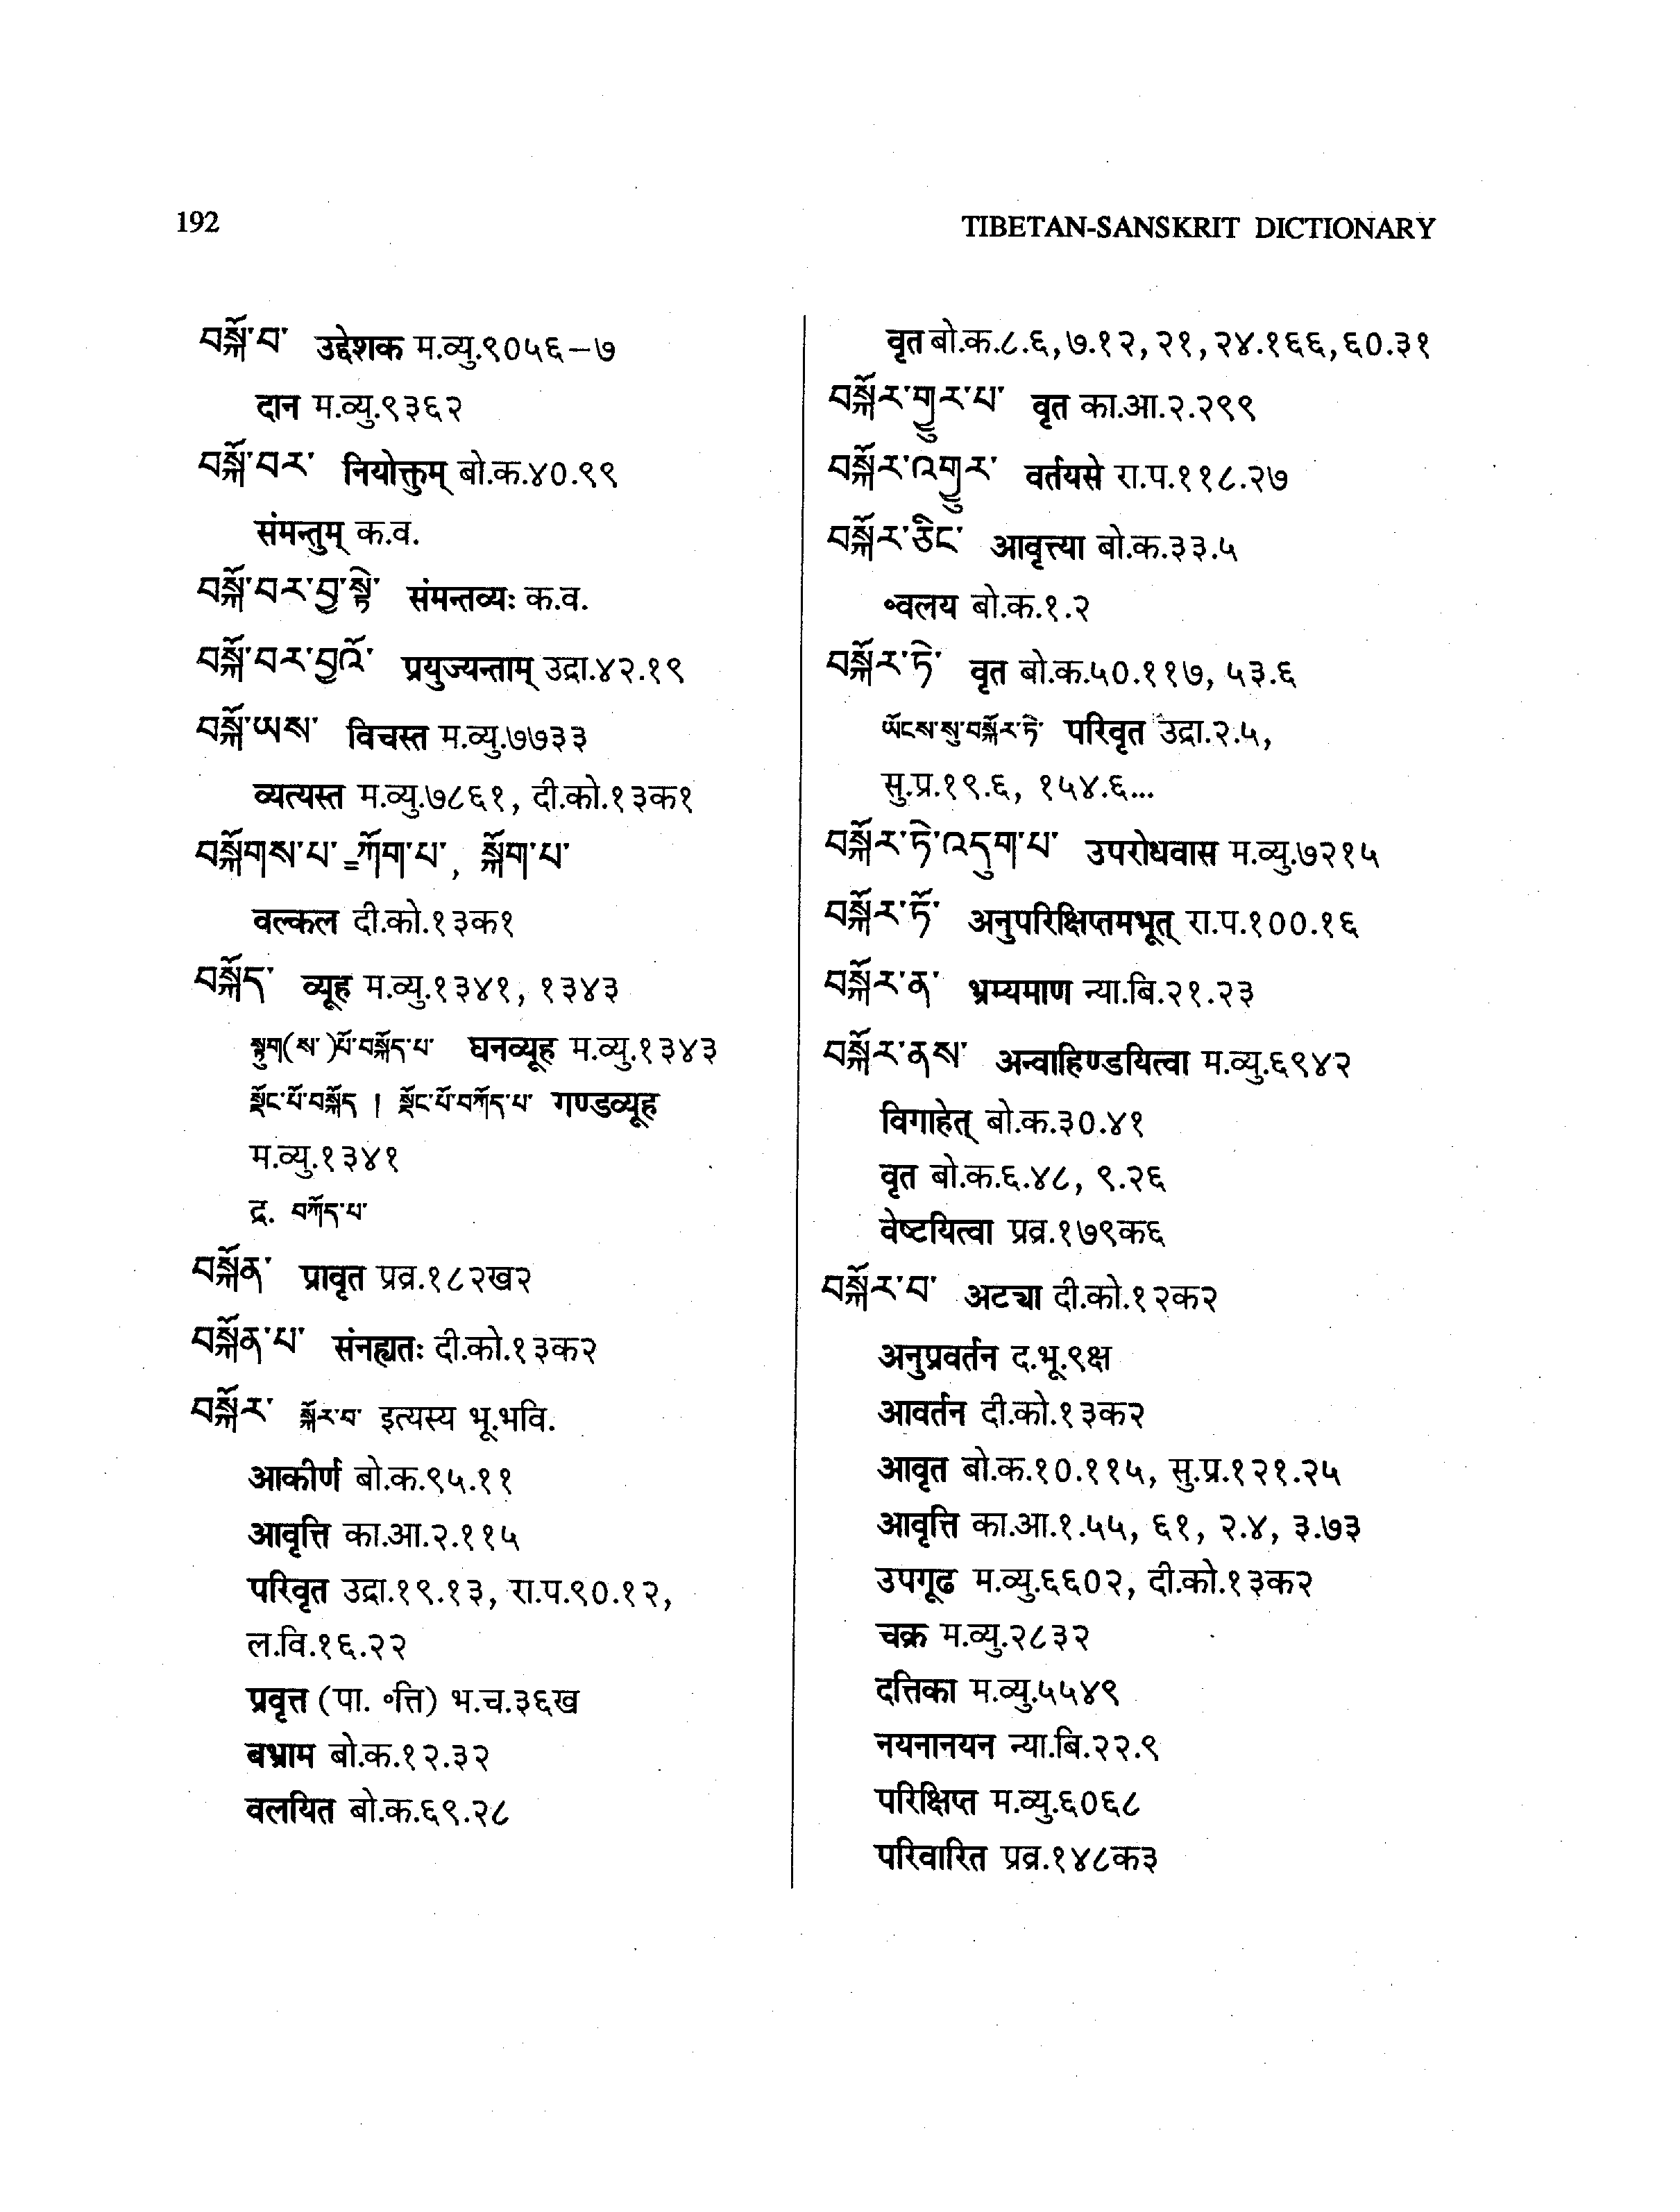 192
TIBETAN-SANSKRIT DICTIONARY
བསྐོ་བ་ उद्देशक म.व्यु.९०५६–७
दान म.व्यु.९३६२
བསྐོ་བར་ नियोक्तुम् बो.क.४०.९९
संमन्तुम् क.व.
བསྐོ་བར་བྱ་སྟེ་ संमन्तव्यः क.व.
བསྐོ་བར་བྱའོ་ प्रयुज्यन्ताम् उद्रा.४२.१९
བསྐོ་ཡས་ विचस्त म.व्यु.७७३३
व्यत्यस्त म.व्यु.७८६१, दी.को.१३क१
བསྐོགས་པ་=ཀོག་པ་, སྐོག་པ་
वल्कल दी.को.१३क१
བསྐོད་ व्यूह म.व्यु.१३४१, १३४३
སྟུག(ས་)པོ་བསྐོད་པ་ घनव्यूह म.व्यु.१३४३
སྡོང་པོ་བསྐོད | སྡོང་པོ་བཀོད་པ་ गण्डव्यूह
म.व्यु.१३४१
द्र. བཀོད་པ་
བསྐོན་ प्रावृत प्रव्र.१८२ख२
བསྐོན་པ་ संनह्यतः दी.को.१३क२
བསྐོར་ སྐོར་བ་ इत्यस्य भू.भवि.
आकीर्ण बो.क.९५.११
आवृत्ति का.आ.२.११५
परिवृत उद्रा.१९.१३, रा.प.९०.१२,
ल.वि.१६.२२
प्रवृत्त (पा. ॰त्ति) भ.च.३६ख
बभ्राम बो.क.१२.३२
वलयित बो.क.६९.२८
वृत बो.क.८.६, ७.१२, २१, २४.१६६, ६०.३१
བསྐོར་གྱུར་པ་ वृत का.आ.२.२९९
བསྐོར་འགྱུར་ वर्तयसे रा.प.११८.२७
བསྐོར་ཅིང་ आवृत्त्या बो.क.३३.५
॰वलय बो.क.१.२
བསྐོར་ཏེ་ वृत बो.क.५०.११७, ५३.६
ཡོངས་སུ་བསྐོར་ཏེ་ परिवृत उद्रा.२.५,
सु.प्र.१९.६, १५४.६...
བསྐོར་ཏེ་འདུག་པ་ उपरोधवास म.व्यु.७२१५
བསྐོར་ཏོ་ अनुपरिक्षिप्तमभूत् रा.प.१००.१६
བསྐོར་ན་ भ्रम्यमाण न्या.बि.२१.२३
བསྐོར་ནས་ अन्वाहिण्डयित्वा म.व्यु.६९४२
विगाहेत् बो.क.३०.४१
वृत बो.क.६.४८, ९.२६
वेष्टयित्वा प्रव्र.१७९क६
བསྐོར་བ་ अटच्या दी.को.१२क२
अनुप्रवर्तन द.भू.९क्ष
आवर्तन दी.को.१३क२
आवृत बो.क.१०.११५, सु.प्र.१२१.२५
आवृत्ति का.आ.१.५५, ६१, २.४, ३.७३
उपगूढ म.व्यु.६६०२, दी.को.१३क२
चक्र म.व्यु.२८३२
दत्तिका म.व्यु.५५४९
नयनानयन न्या.बि.२२.९
परिक्षिप्त म.व्यु.६०६८
परिवारित प्रव्र.१४८क३